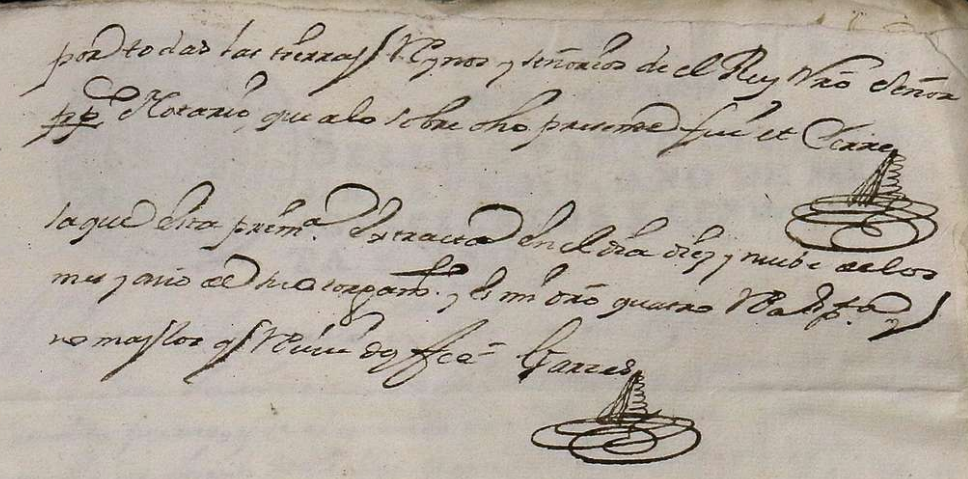 por todas las tierras Reynos y señorios de el Rey nrõ Señor
pp.co Notario, que a lo sobre dho presente fui et Cerre
saque esta prim.a extracta en el dia diez y nueve de los
mes y año de su otorgam.to y es mi dro quatro
no mas los q.s Reciui doy fee